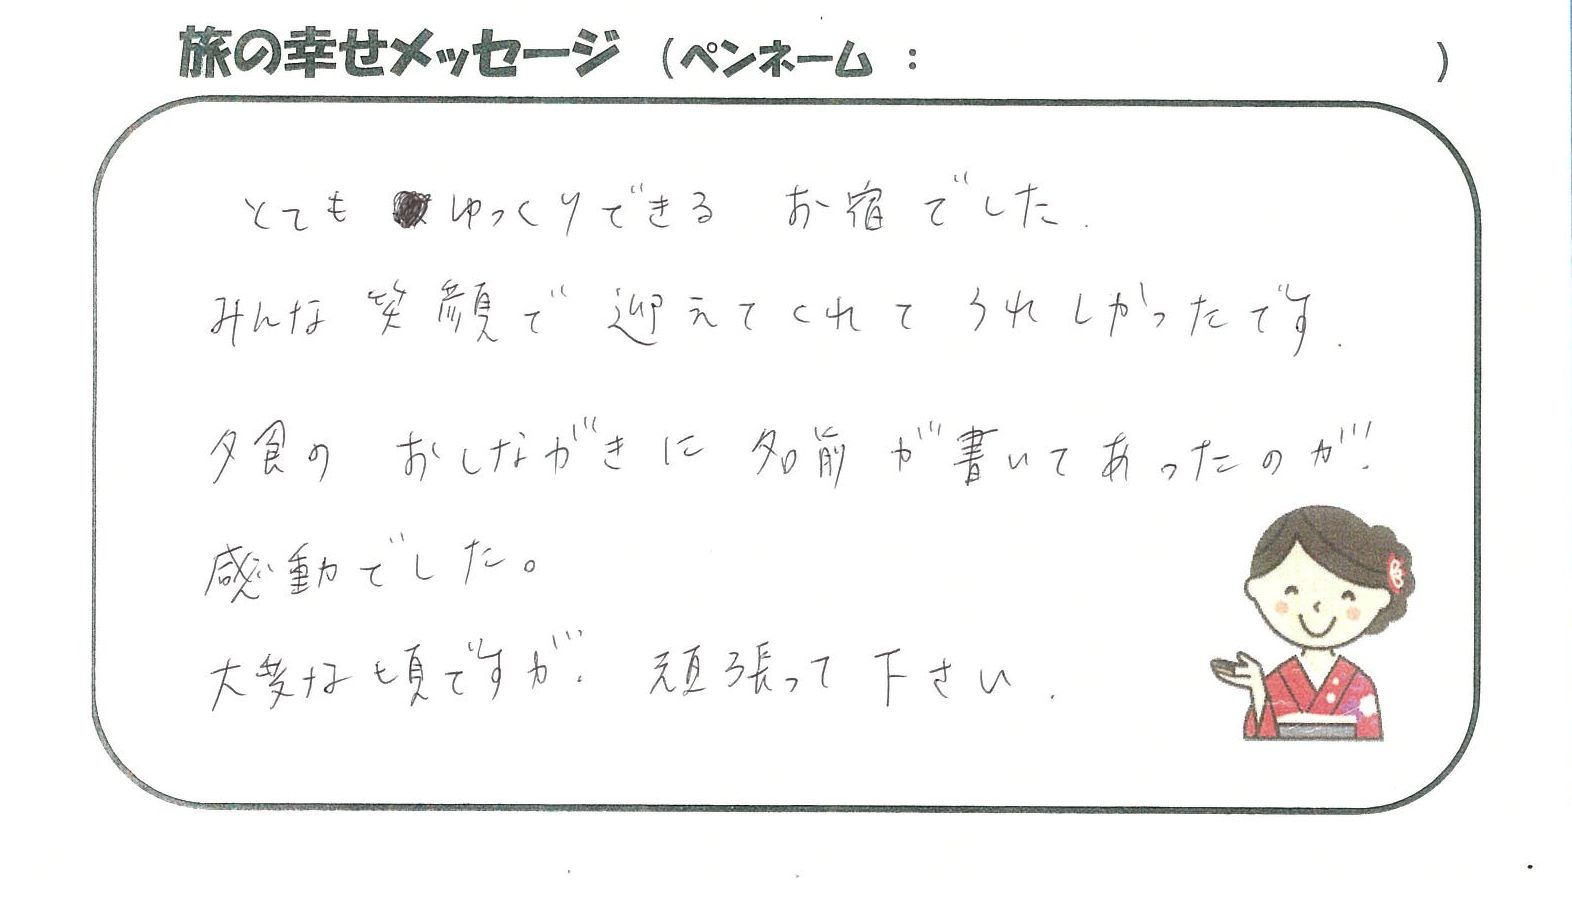 旅の幸せメッセージ (ペンネーム : )
とても ゆっくりできる お宿でした.
みんな 笑顔で 迎えてくれて うれしかったです.
夕食の おしながきに 名前が書いてあったのが!
感動でした。
大変な頃ですが. 頑張って下さい.